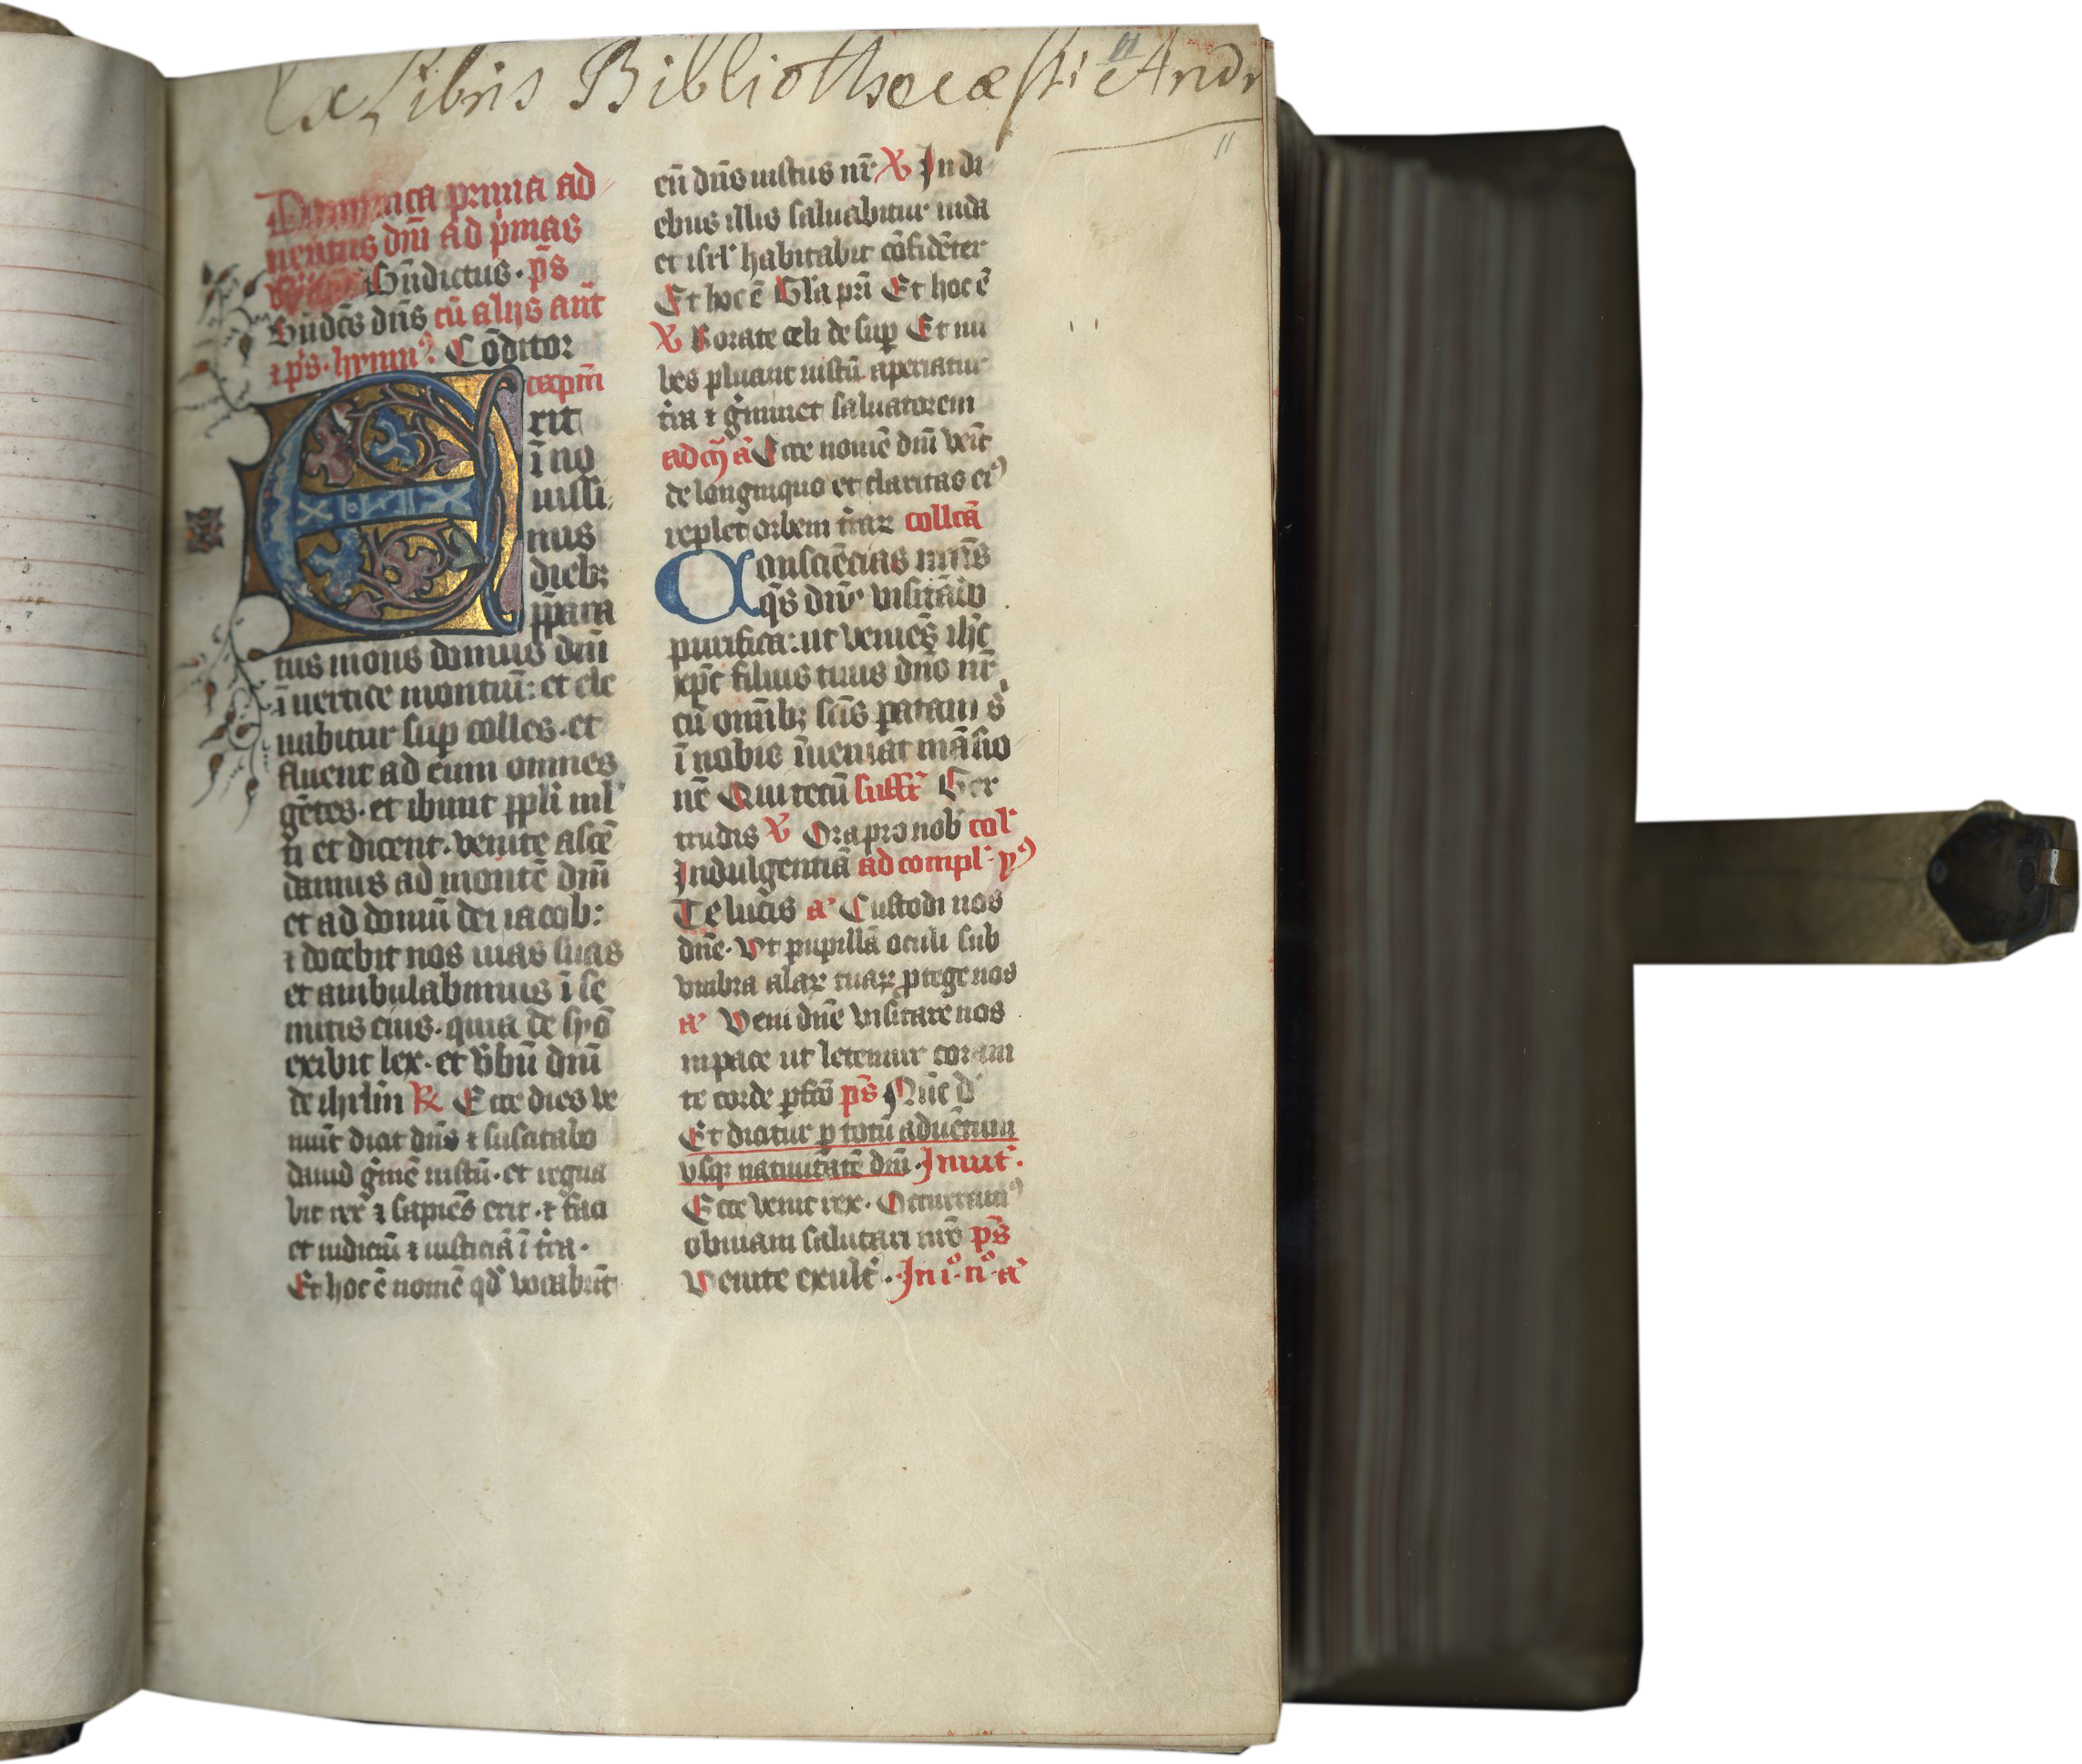 Ex Libris Bibliothecæ sti Andr
11
11
Dominica prima ad
uentus dn̄i ad p̄mas
Bn̄dictus · p̄s
Bn̄dc̄s dn̄s cū alijs an̄t
⁊ p̄s · hymn⁹. Cōditor
capm̄
Erit
ī no
uissi
mus
dieb⁊
p̄para
tus mons domus dn̄i
ī uertice montiū: et ele
uabitur sup̄ colles · et
fluent ad eum omnes
gētes · et ibunt pp̄li ml̓
ti et dicent · venite ascē
damus ad montē dn̄i
et ad domū dei iacob:
⁊ docebit nos uias suas
et ambulabimus ī se
mitis eius · quia de syō
exibit lex · et v̄bū dn̄i
de ihrlm̄ R̷ Ecce dies ve
niūt dicit dn̄s ⁊ suscitabo
dauid ḡmē iustū · et regna
bit rex ⁊ sapiēs erit · ⁊ faci
et iudiciū ⁊ iusticiā ī t̄ra ·
Et hoc ē nomē qd̓ vocabūt
eū dn̄s iustus nr̄ V̷ In di
ebus illis saluabitur iuda
et isrl̓ habitabit cōfidēter
Et hoc ē Gl̄a pr̄i Et hoc ē
V̷ Rorate celi de sup̄ Et nu
bes pluant iustū aperiatur
t̄ra ⁊ ḡminet saluatorem
ad m̄ a̓ Ecce nomē dn̄i veīt
de longinquo et claritas ei⁹
replet orbem t̄raꝝ collcā
Consciēcias nr̄as
q̄s dn̄e visitādo
purifica: ut veniēs ih̄c
xp̄c filius tuus dn̄s nr̄
cū omīb⁊ sc̄is paratam s̓
ī nobis īueniat māsio
nē Qui tecū suffr̄ Ger
trudis V̷ Ora pro nob̓ col̓
Indulgentiā ad compl̓ · y⁹
Te lucis a̓ Custodi nos
dn̄e · Vt pupillā oculi sub
vmbra alaꝝ tuaꝝ ꝓtege nos
a̓ Veni dn̄e visitare nos
in pace ut letemur coram
te corde ꝑfc̄o p̄s Nūc d̓
Et dicitur ꝑ totū aduentum
vsqꝫ natiuitatē dn̄i · Inuit̄ ·
Ecce venit rex · Occurram⁹
obuiam saluatori nr̄o p̄s
Venite exult̄ · · In i° · n° · a̓